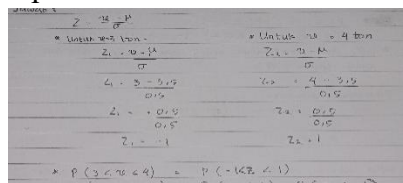 Z = x - μ / σ
• Untuk x = 3 ton -
Z₁ = x - μ / σ
Z₁ = 3 - 3,5 / 0,5
Z₁ = - 0,5 / 0,5
Z₁ = -1
* Untuk x = 4 ton
Z₂ = x - μ / σ
Z₂ = 4 - 3,5 / 0,5
Z₂ = 0,5 / 0,5
Z₂ = 1
* P (3 < x < 4) = P (-1 < Z < 1)